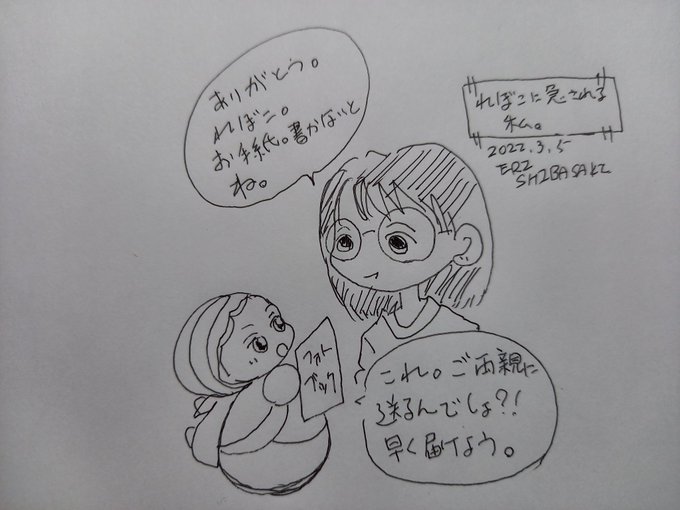 れぼこに急される
私。
2022.3.5
ERI
SHIBASAKI
ありがとう。
れぼこ。
お手紙。書かないと
ね。
フォト
ブック
これ。ご両親に
送るんでしょ?!
早く届けよう。